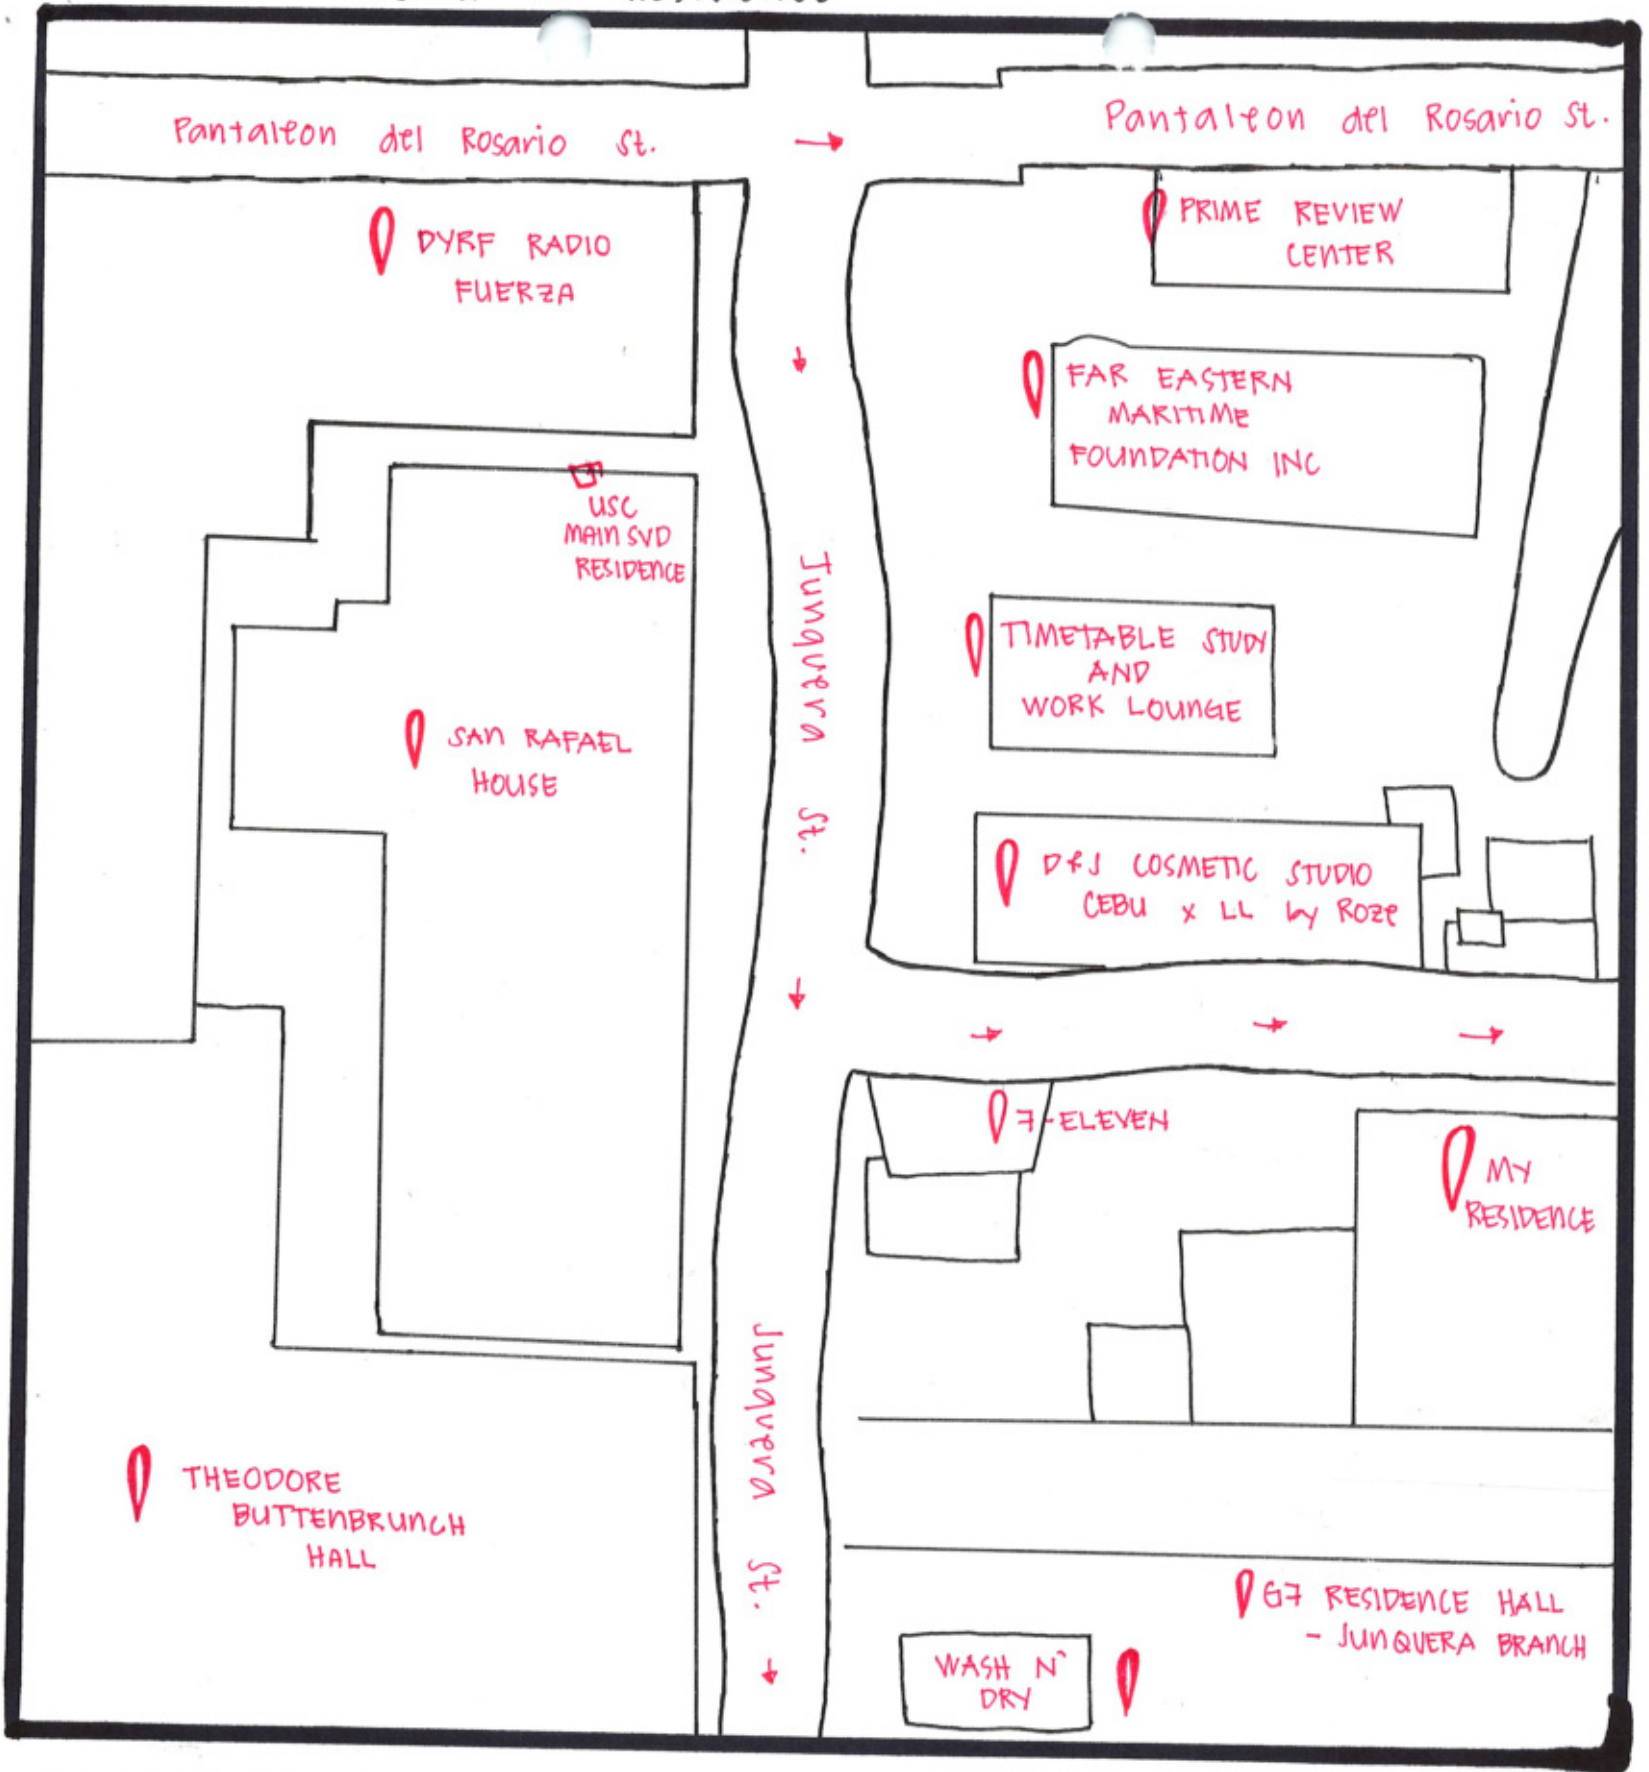 Pantaleon del Rosario St.
Pantaleon del Rosario St.
DYRF RADIO
FUERZA
PRIME REVIEW
CENTER
FAR EASTERN
MARITIME
FOUNDATION INC
USC
MAIN SVD
RESIDENCE
Junquera St.
TIMETABLE STUDY
AND
WORK LOUNGE
SAN RAFAEL
HOUSE
D&J COSMETIC STUDIO
CEBU x LL by Roze
7-ELEVEN
MY
RESIDENCE
Junquera St.
THEODORE
BUTTENBRUNCH
HALL
G7 RESIDENCE HALL
- JUNQUERA BRANCH
WASH N'
DRY